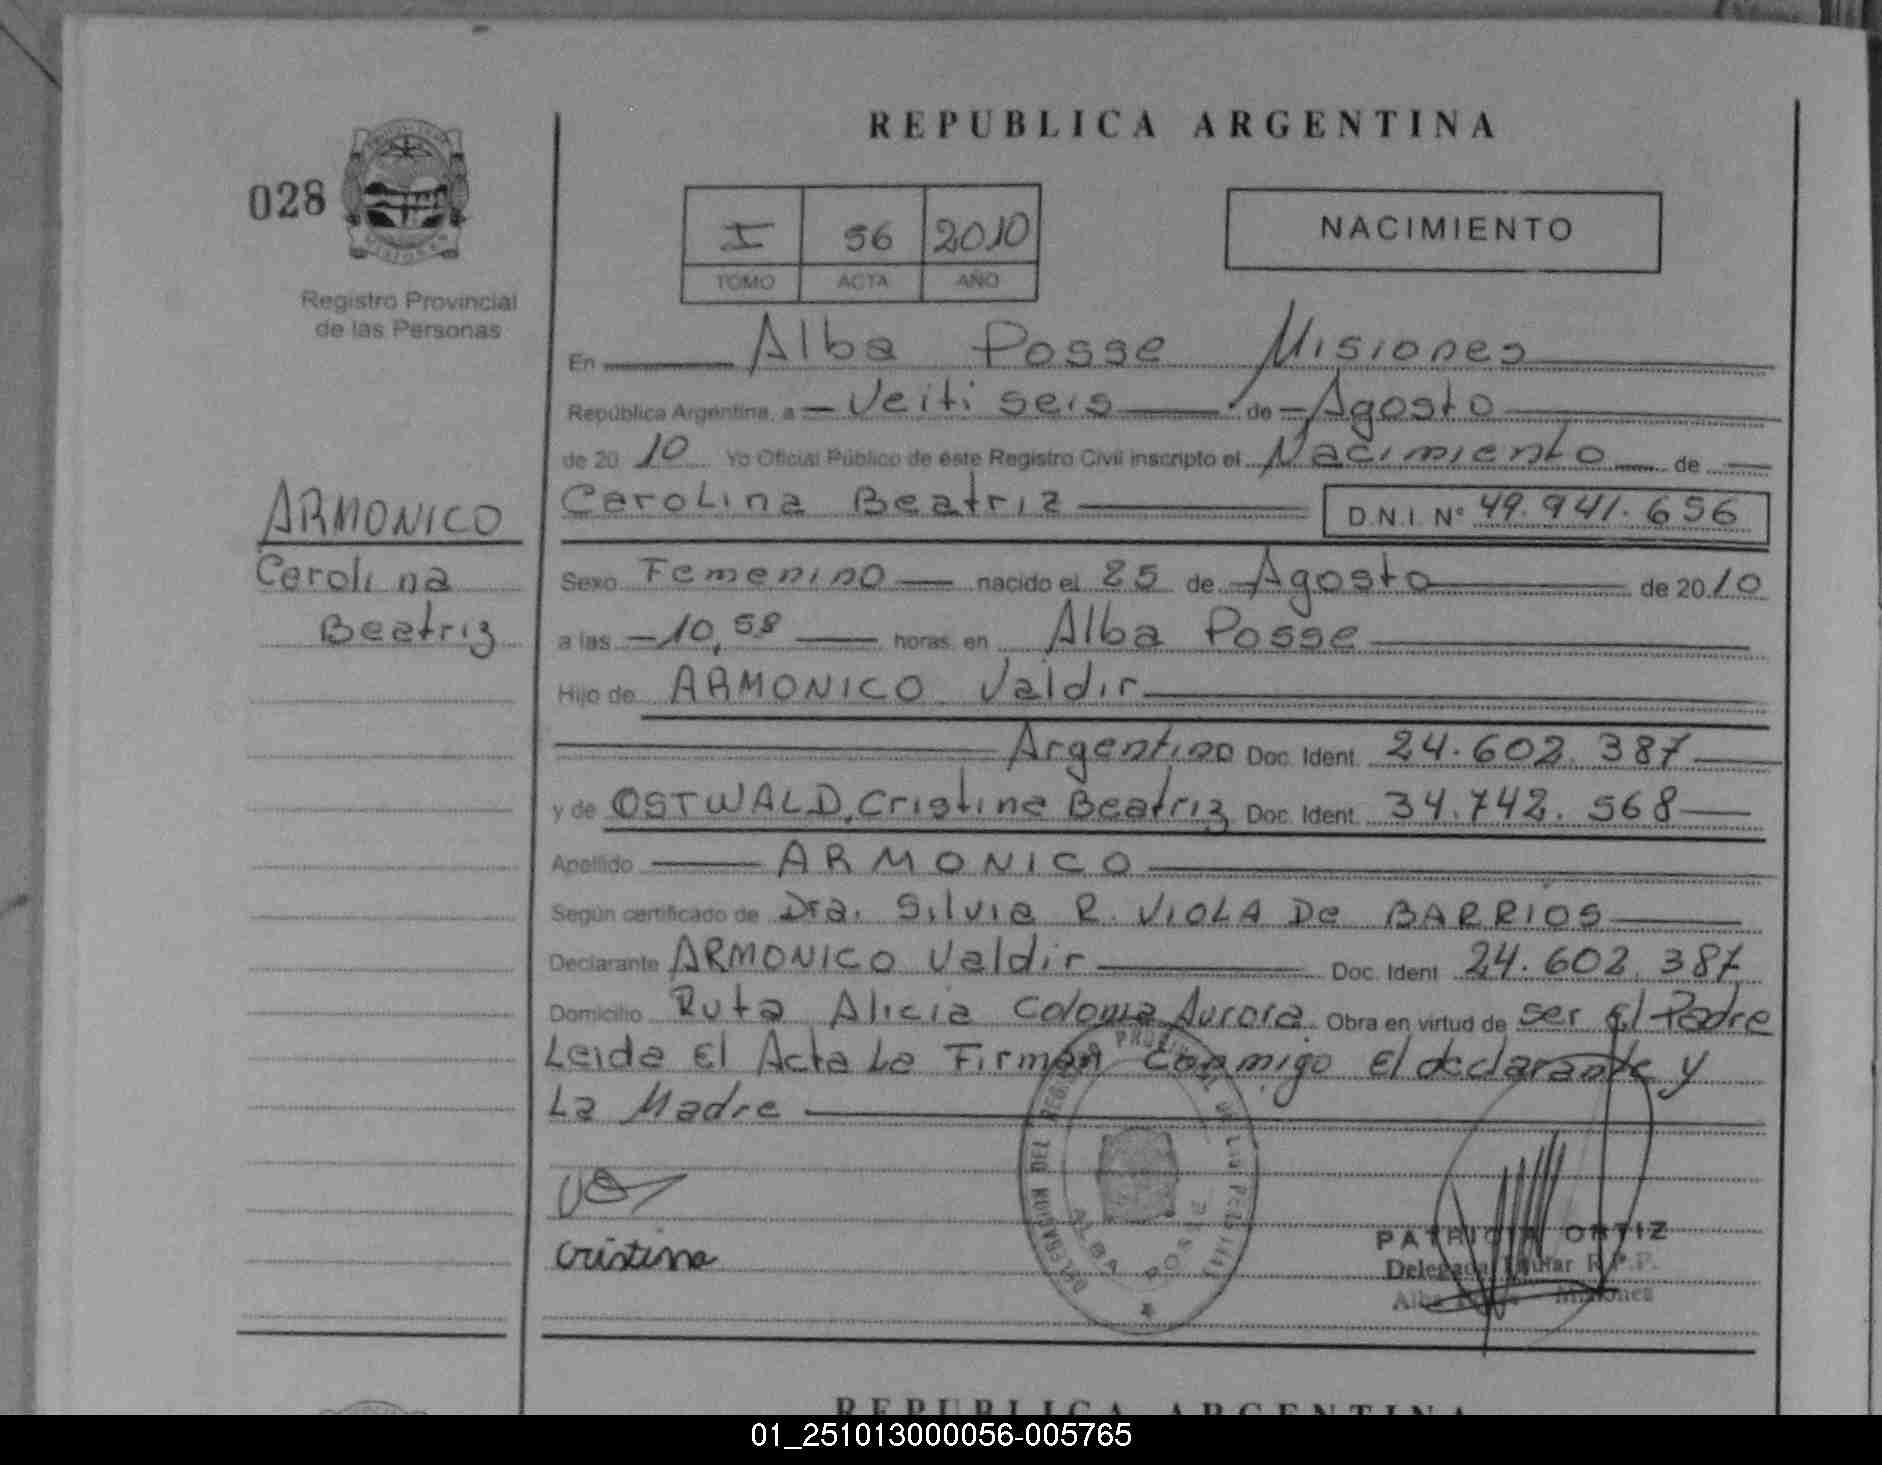 REPUBLICA ARGENTINA
028
I 56 2010
TOMO ACTA AÑO
NACIMIENTO
Registro Provincial
de las Personas
En Alba Posse Misiones
República Argentina, a Veiti seis de Agosto
de 2010 Yo Oficial Público de éste Registro Civil inscripto el Nacimiento de
Carolina Beatriz D.N.I. Nº 49.941.656
ARMONICO
Carolina
Beatriz
Sexo Femenino nacido el 25 de Agosto de 2010
a las 10,58 horas en Alba Posse
Hijo de ARMONICO Valdir
Argentino Doc. Ident. 24.602.387
y de OSTWALD, Cristina Beatriz Doc. Ident. 34.742.568
Apellido ARMONICO
Según certificado de Dra. Silvia R. VIOLA De BARRIOS
Declarante ARMONICO Valdir Doc. Ident 24.602.387
Domicilio Ruta Alicia Colonia Aurora Obra en virtud de ser El Padre
Leida El Acta La Firman Conmigo El declarante y
La Madre
DELEGACION DEL REGISTRO PROVINCIAL DE LAS PERSONAS
ALBA POSSE
Cristina
PATRICIA ORTIZ
Delegada Titular R.P.P.
Alba Posse Misiones
REPUBLICA ARGENTINA
01_251013000056-005765